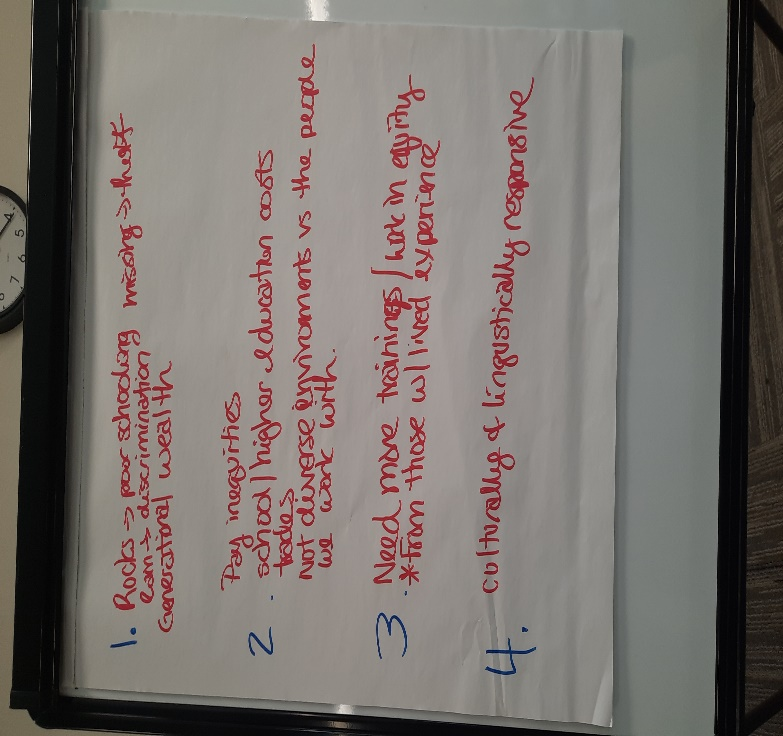 1. Rocks → poor schooling missing → theft
Lam → discrimination
Generational wealth
Pay inequities
2. school/higher education costs
trades
Not diverse enviroments vs the people
we work with.
3. Need more trainings/work in equity
*From those w/lived experience
4. culturally & lingustically responsive
8 7 6 5 4